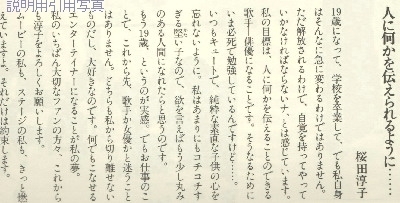 説明用引用写真
人に何かを伝えられるように……
桜田淳子
19歳になって、学校を卒業して、でも私自身
はそんなに急に変わるわけではありません。
ただ解放されるわけで、自覚を持ってやって
いかなければならないナ、とは感じています。
私の目標は、人に何かを伝えることのできる
歌手・俳優になることです。そうなるために
いま必死で勉強しているんですけど……。
いつもキュートで、純粋な素直な子供の心を
忘れないように。私はあまりにもコチコチす
ぎる堅い子なので、欲を言えばもう少し丸み
のある人間になれたらと思うのです。
もう19歳、というのが実感。でもお仕事のこ
とで、これから先、歌手か女優かと迷うこと
はありません。どちらも私から切り離せない
ものだし、大好きなのです。何でもこなせる
エンターテイナーになることが私の夢。
私のいちばん大切なファンの方々、これから
も淳子をよろしくお願いします。
ムービーの私も、ステージの私も、きっと燃
えていますよ。それだけは約束します。